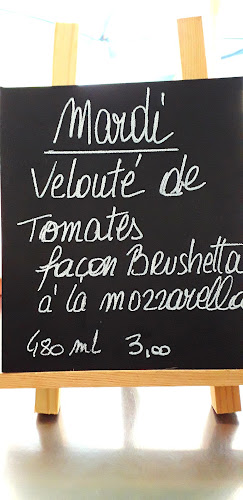 Mardi
Velouté de
Tomates
façon Brushetta
à la mozzarella
480 ml 3,00